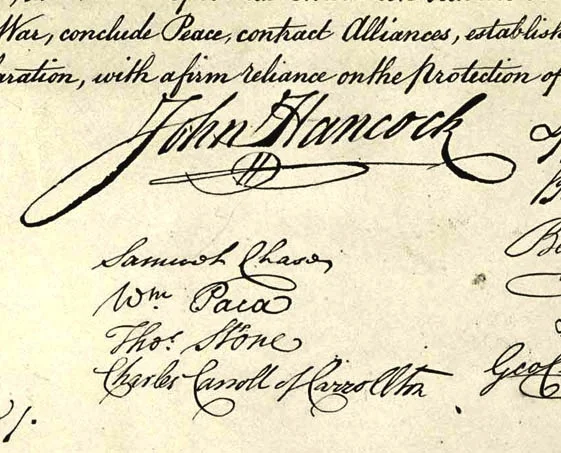 War, conclude Peace, contract Alliances, establish
aration, with a firm reliance on the protection of
John Hancock
Samuel Chase
Wm. Paca
Thos. Stone
Charles Carroll of Carrollton
Geo